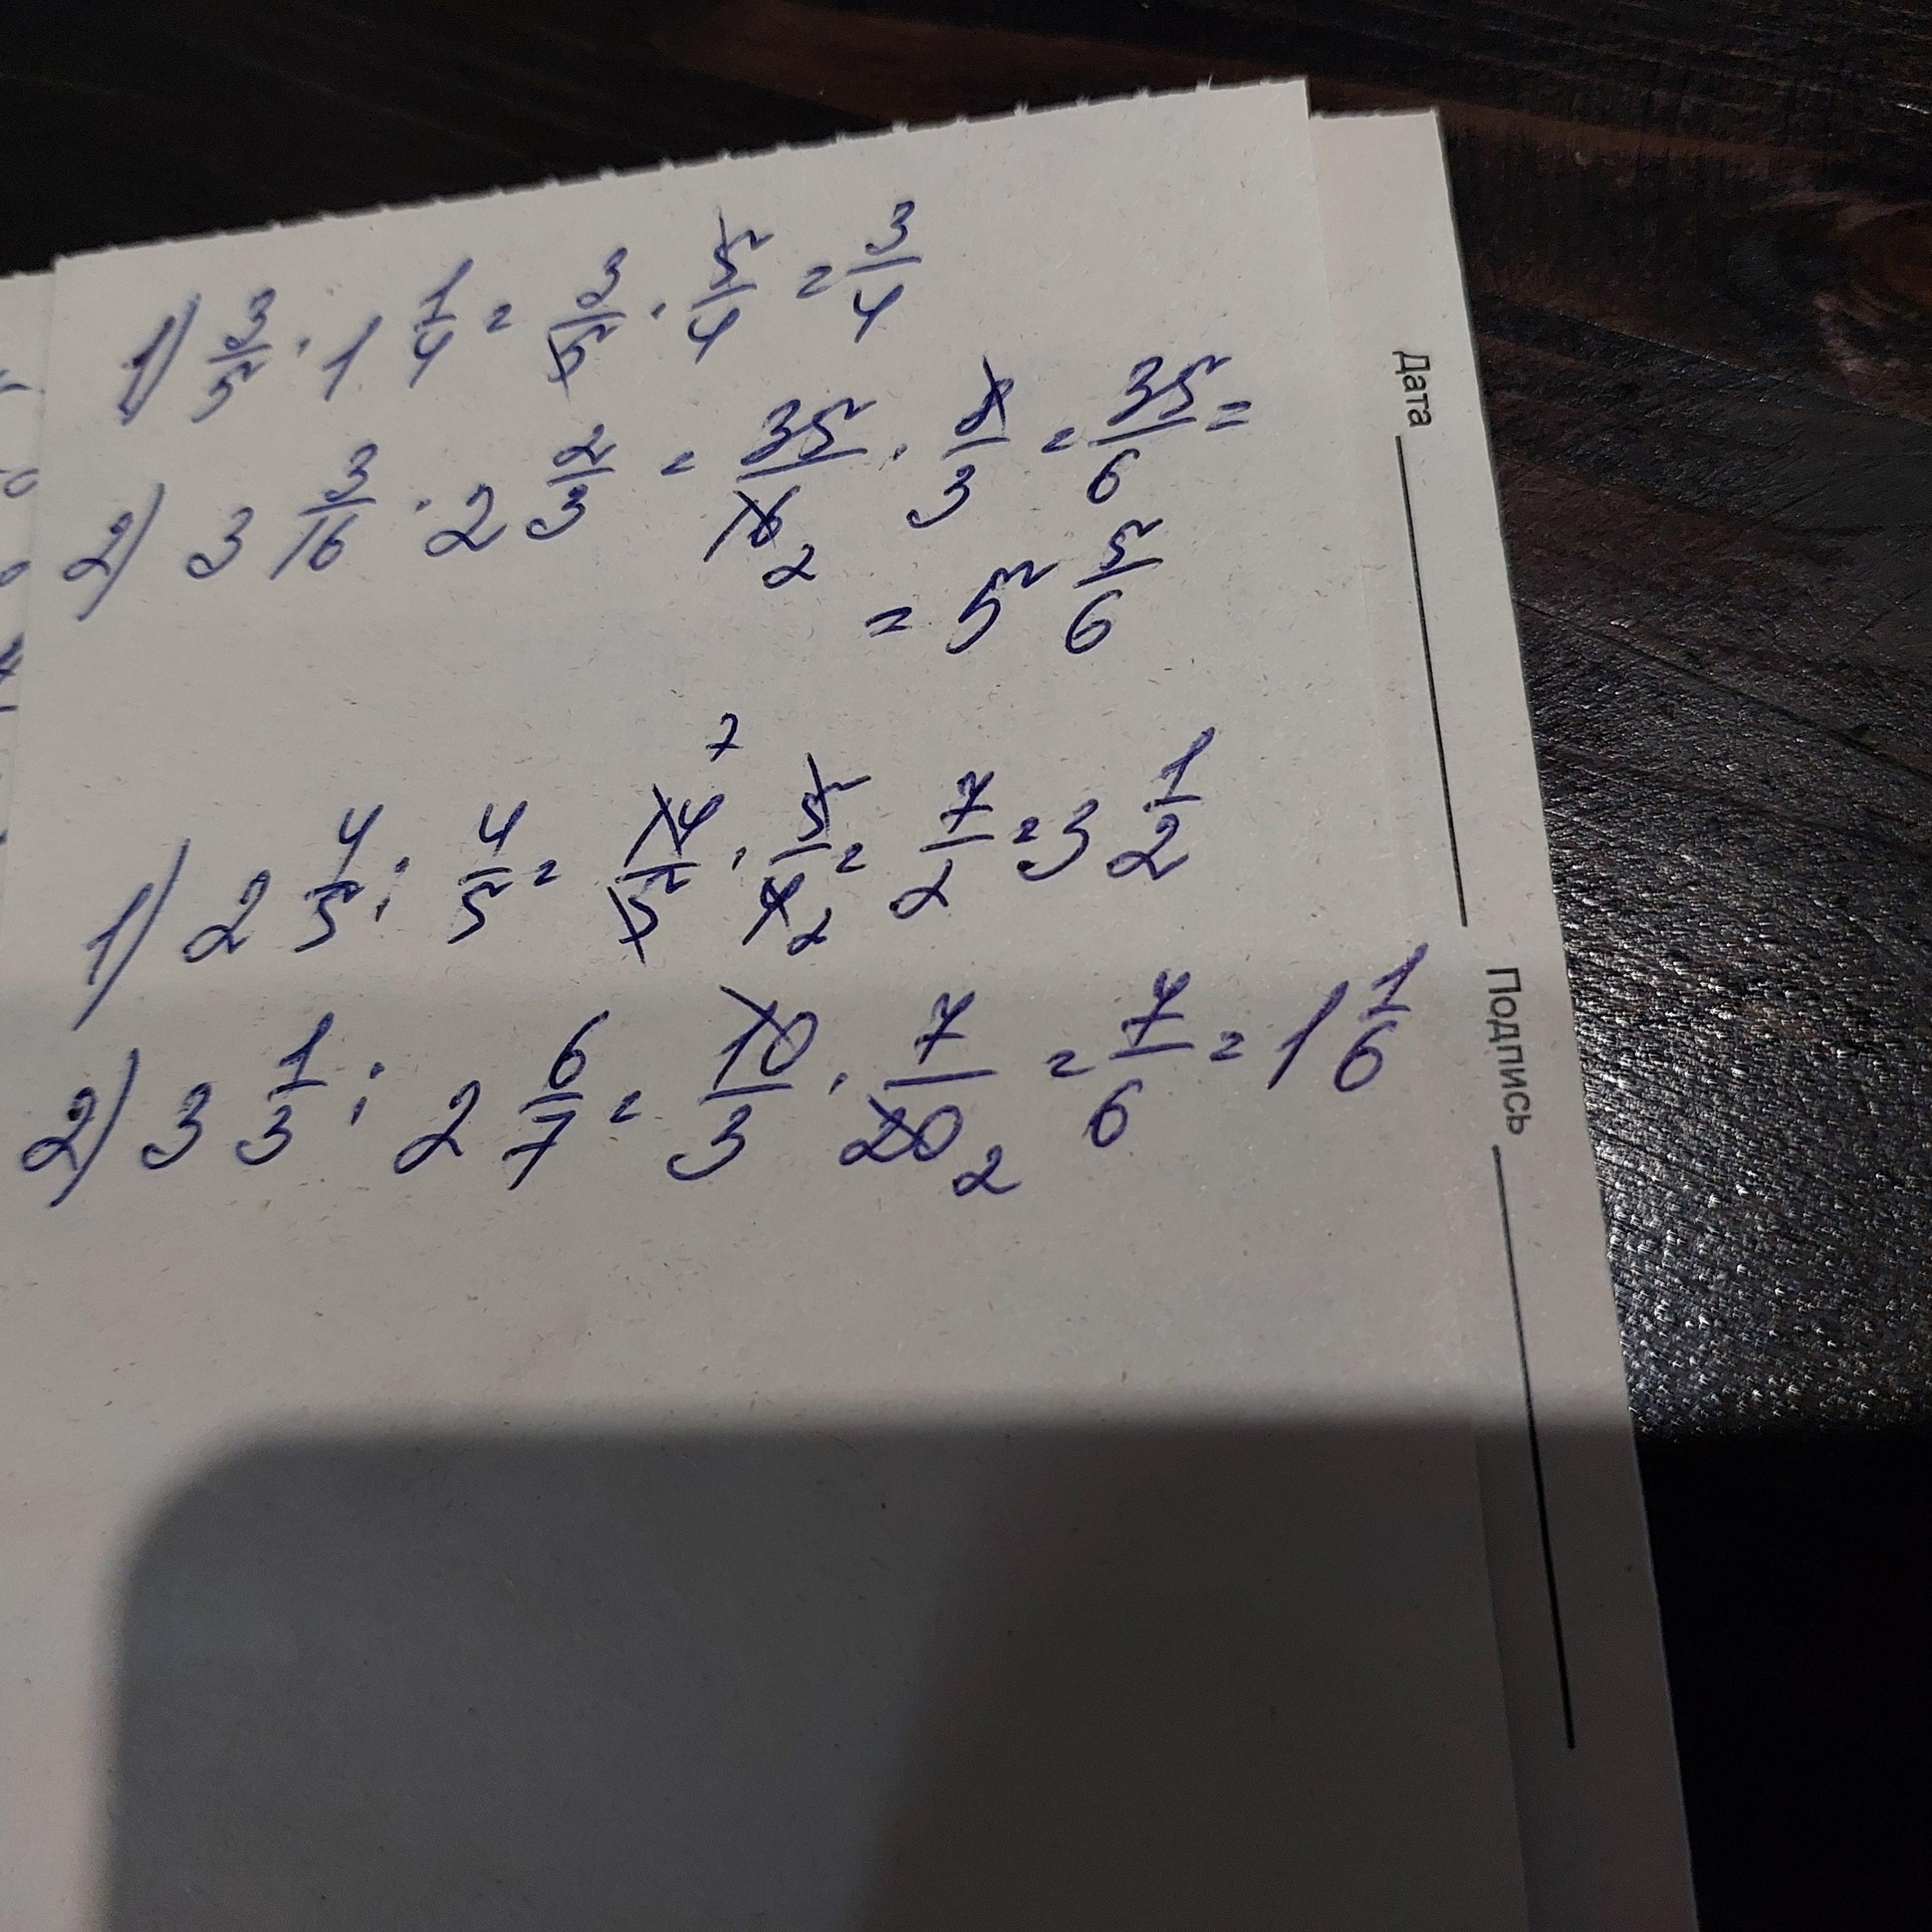 1) 3/5 · 1 1/4 = 3/5 · 5/4 = 3/4
2) 3 3/16 · 2 2/3 = 35/16 2 · 8/3 = 35/6 =
= 5 5/6
1) 2 4/5 : 4/5 = 14 7/5 · 5/4 2 = 7/2 = 3 1/2
2) 3 1/3 : 2 6/7 = 10/3 · 7/20 2 = 7/6 = 1 1/6
Дата
Подпись